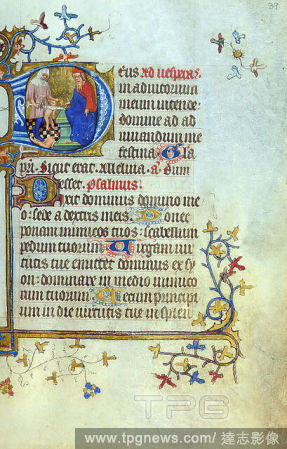 39
eus ad vesperas.
in adiutorium
meum intende.
domine ad ad
iuuandum me
festina Gla
pri. Sicut erat. Alleluia. a. Dum
esset. psalmus.
Dixit dominus domino me
o: sede a dextris meis. Donec
ponam inimicos tuos: scabellum
pedum tuorum. Uirgam uir
tutis tue emittet dominus ex sy
on: dominare in medio inimico
rum tuorum. Tecum principi
um in die uirtutis tue in splen
TPG
www.tpgnews.com/ 達志影像